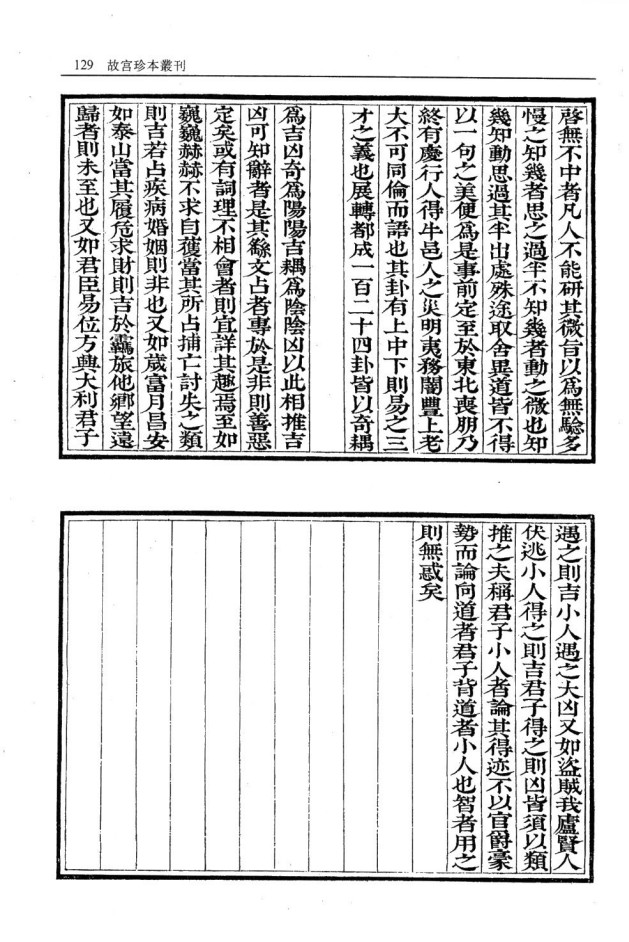 129 故宫珍本叢刊
啓無不中者凡人不能研其微旨以爲無驗多
慢之知幾者思之過半不知幾者動之微也知
幾知動思過其半出處殊途取舍異道皆不得
以一句之美便爲是事前定至於東北喪朋乃
終有慶行人得牛邑人之災明夷務闇豐上老
大不可同倫而語也其卦有上中下則易之三
才之義也展轉都成一百二十四卦皆以奇耦
爲吉凶奇爲陽陽吉耦爲陰陰凶以此相推吉
凶可知辭者是其繇文占者專於是非則善惡
定矣或有詞理不相會者則宜詳其趣焉至如
巍巍赫赫不求自獲當其所占捕亡討失之類
則吉若占疾病婚姻則非也又如歲富月昌安
如泰山當其履危求財則吉於羈旅他鄉望遠
歸者則未至也又如君臣易位方興大利君子
遇之則吉小人遇之大凶又如盜賊我廬賢人
伏逃小人得之則吉君子得之則凶皆須以類
推之夫稱君子小人者論其得迹不以官爵豪
勢而論向道者君子背道者小人也智者用之
則無惑矣